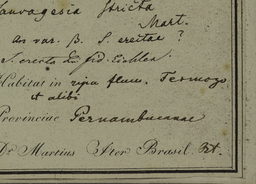 Sauvagesia stricta
Mart.
an var. β. S. erectae?
S. erecta
Habitat in ripa flum.
et alibi
Provinciae Pernambucanae
Dr Martius Iter Brasil.